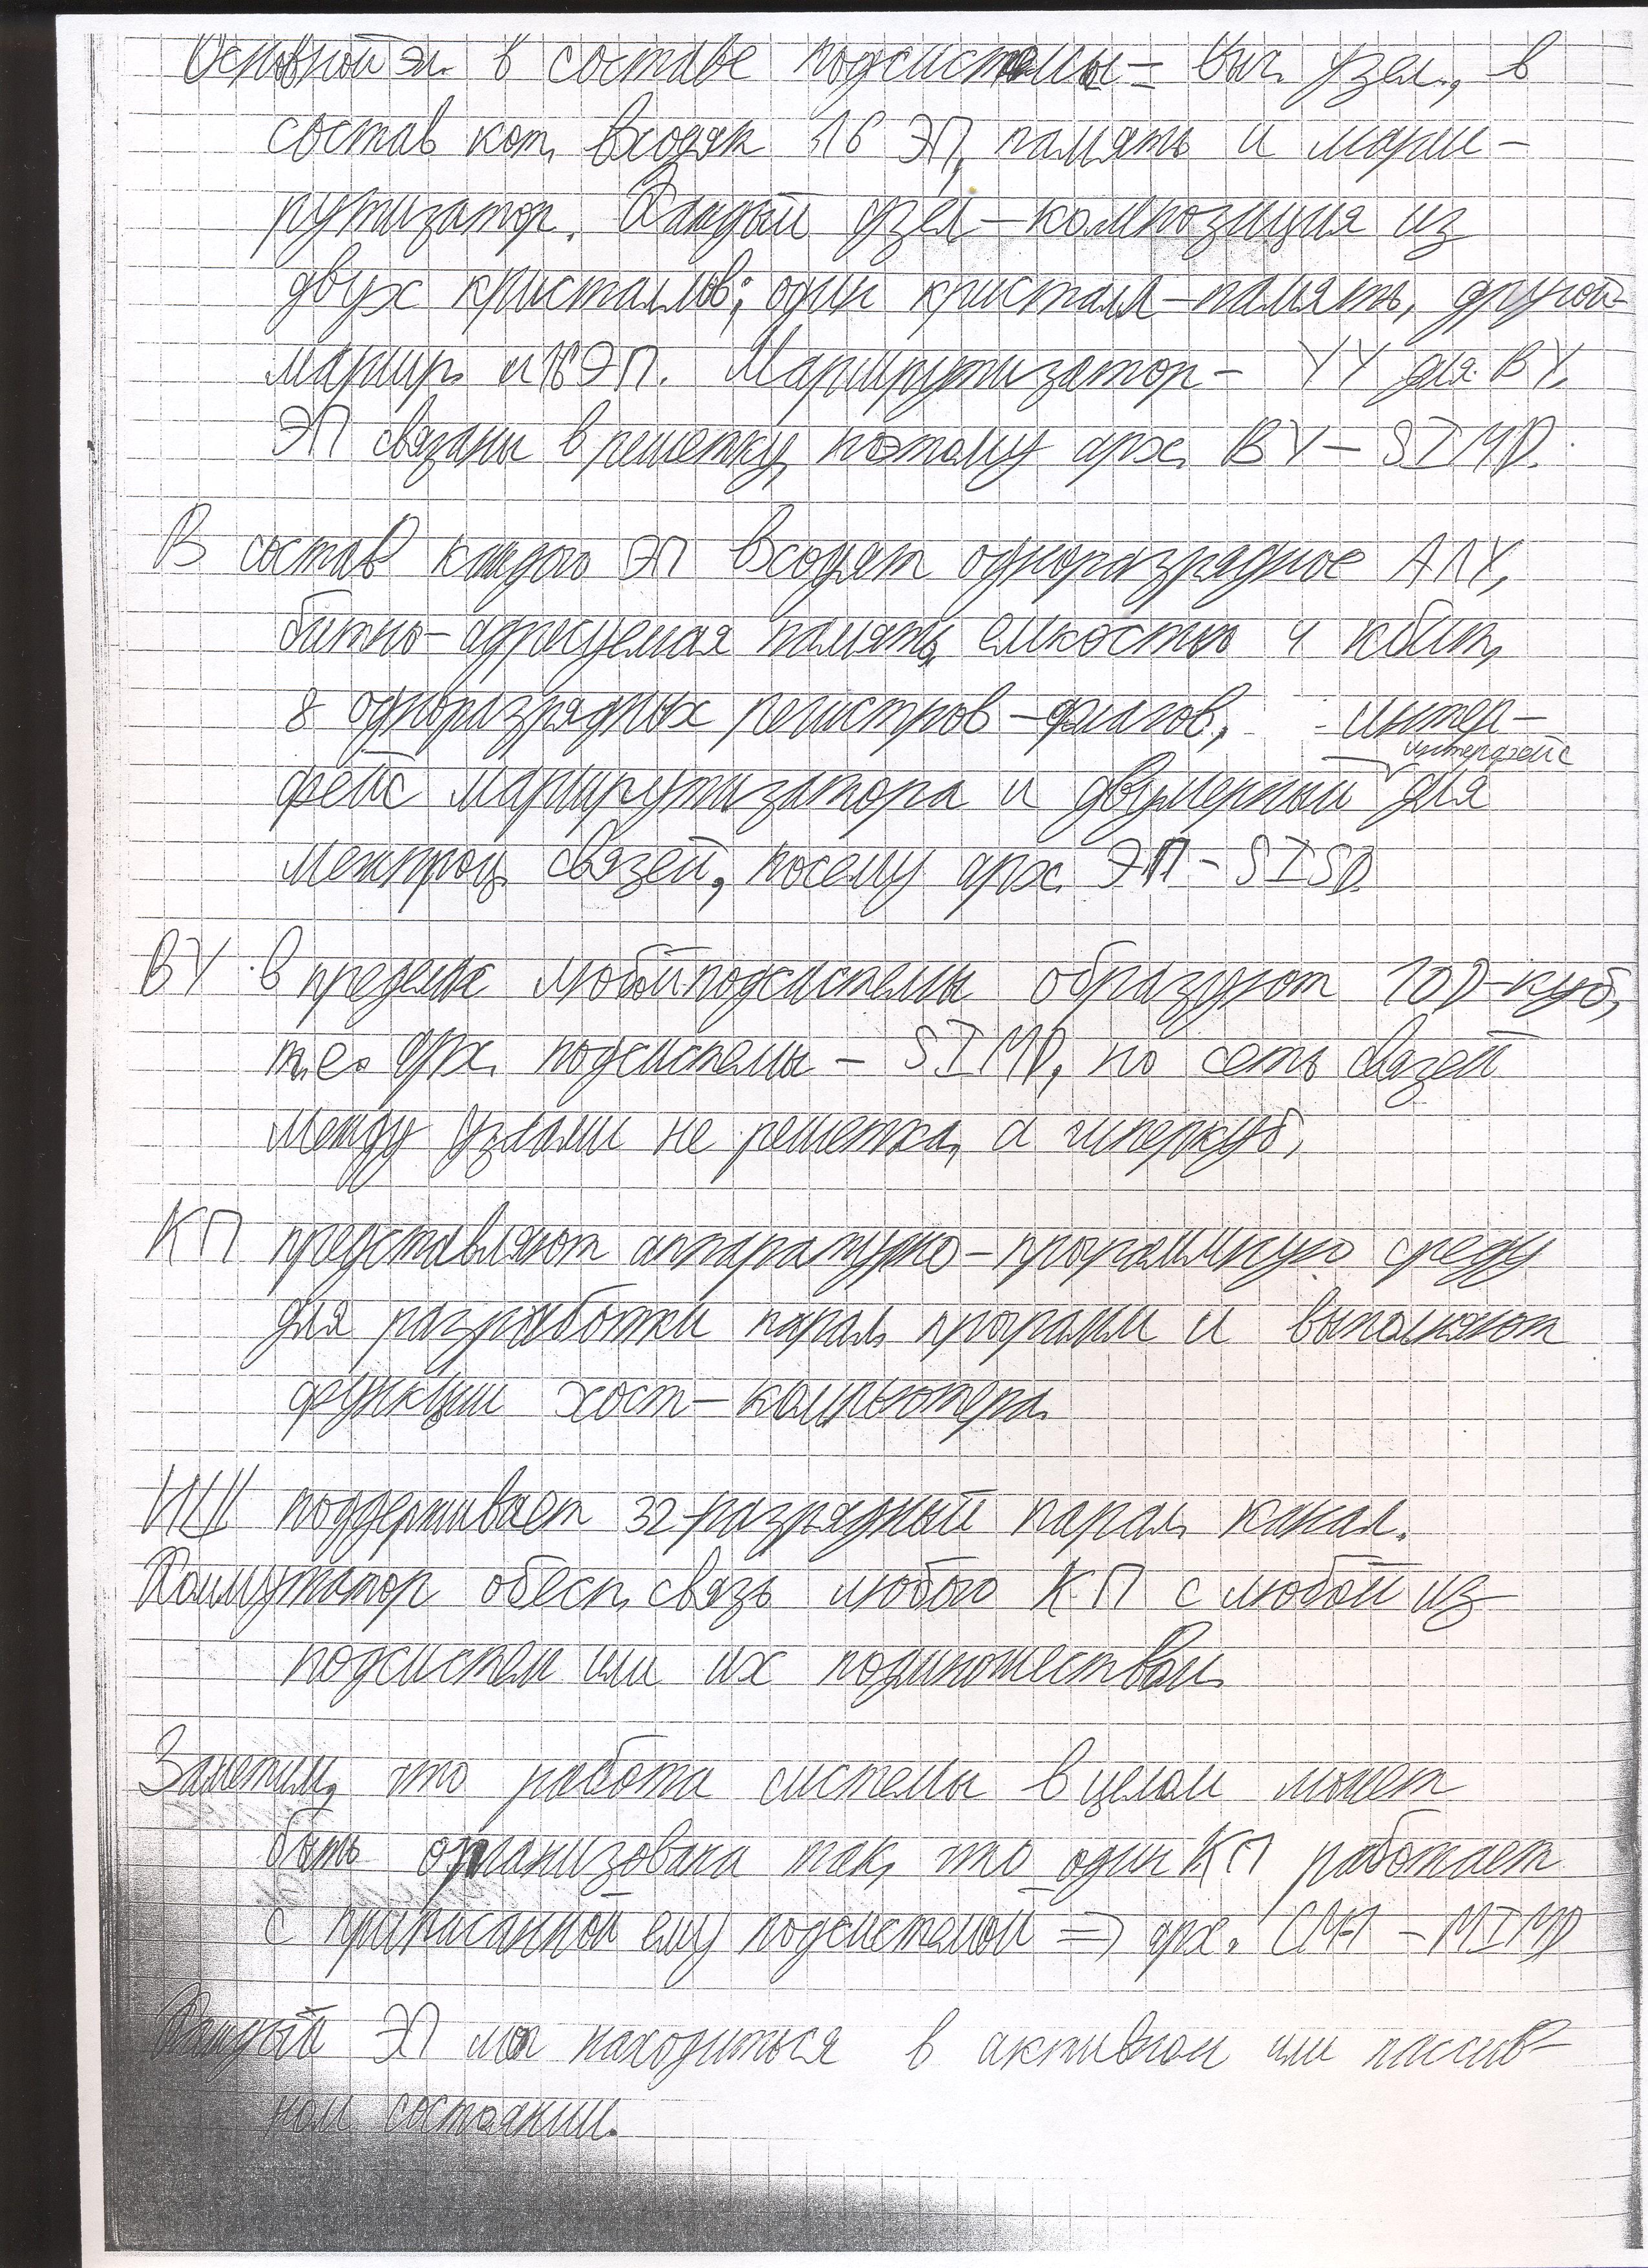 Основной эл. в составе подсистемы – выч. узел, в
состав кот. входят 16 ЭП, память и марш-
рутизатор. Каждый узел – композиция из
двух кристаллов; один кристалл – память, другой –
маршр. и 16 ЭП. Маршрутизатор – УУ для ВУ.
ЭП связаны в решетку, поэтому арх. ВУ – SIMD.
В состав каждого ЭП входят одноразрядное АЛУ,
битно-адресуемая память, емкостью 4 кбит,
8 одноразрядных регистров-флагов, интер-
интерфейс
фейс маршрутизатора и двумерный для
межпроц. связей, посему арх. ЭП – SISD.
ВУ в пределах любой подсистемы образуют 10D-куб,
т.е. арх. подсистемы – SIMD, но сеть связей
между узлами не решетка, а гиперкуб.
КП представляют аппаратурно-програмную среду
для разработки парал. программ и выполняют
функции хост-компьютера.
поддерживает 32-разрядный парал. канал.
Коммутатор обесп. связь любого КП с любой из
подсистем или их подмножеством.
Заметим, что работа системы в целом может
быть организована так, что один КП работает
с приписанной ему подсистемой => арх. – MIMD
Каждый ЭП мож находиться в активном или пассив-
ном состоянии.